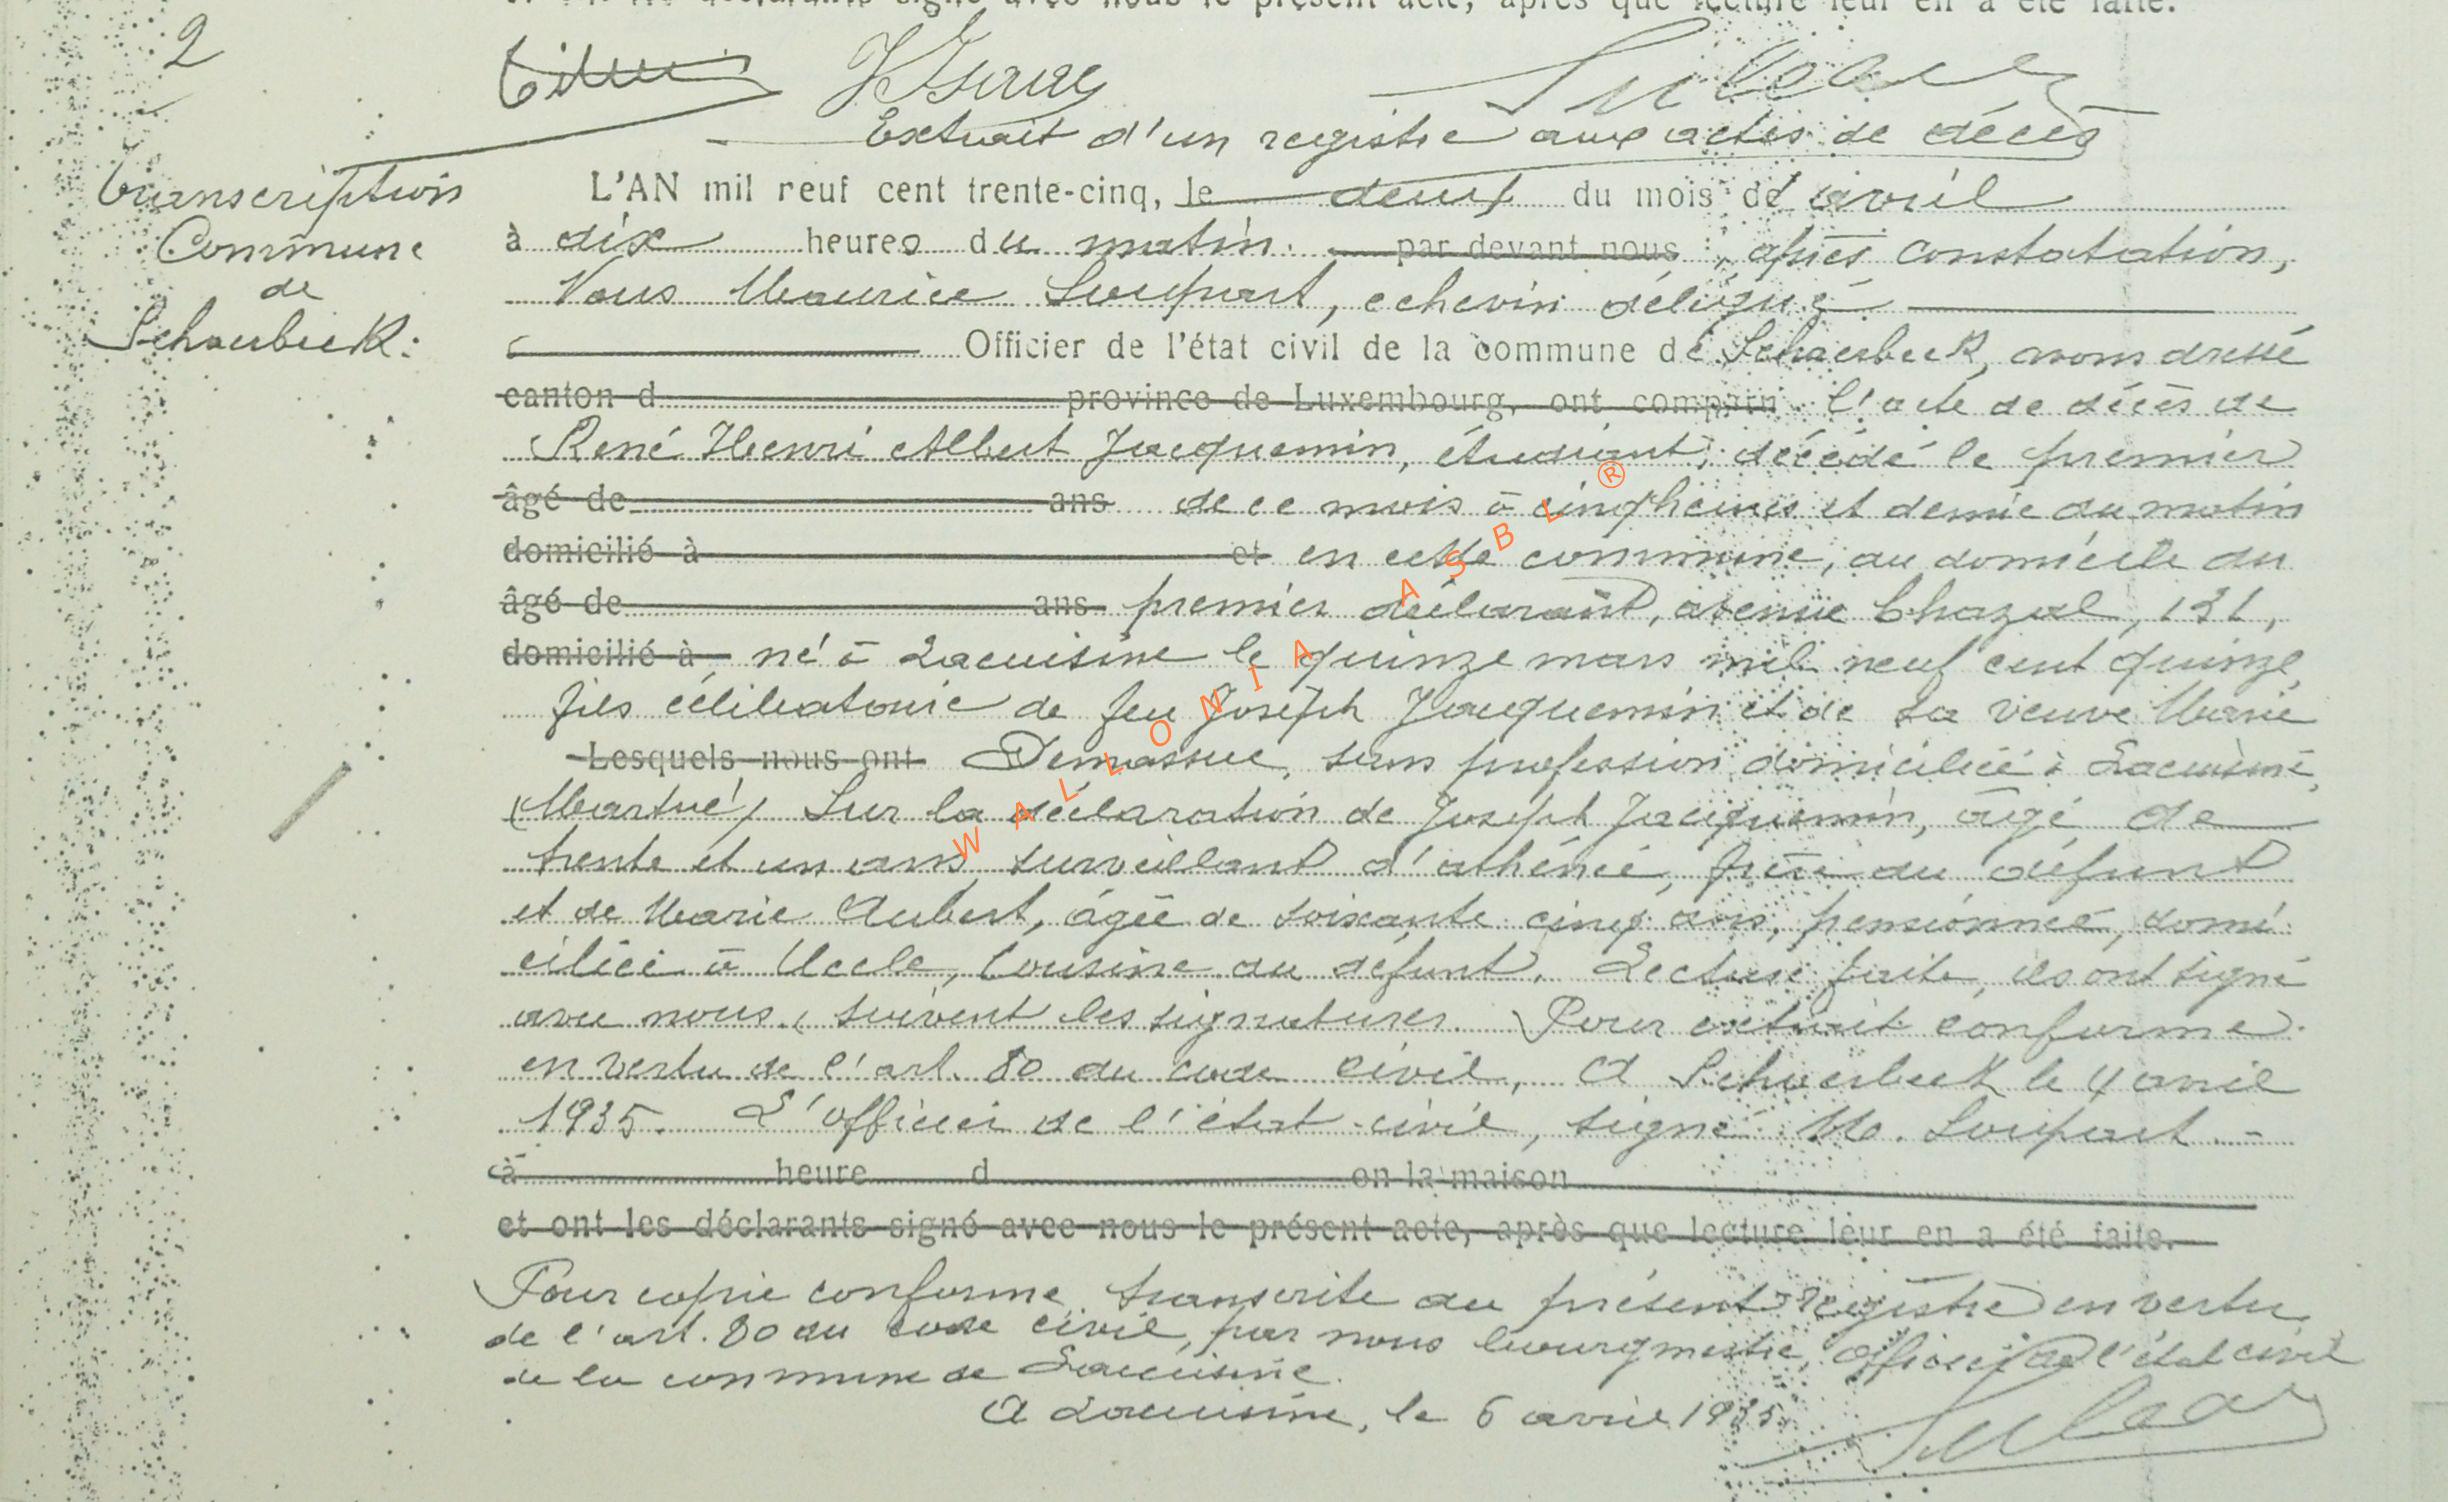 et ont les déclarants signé avec nous le présent acte, après que lecture leur en a été faite.
2
Extrait d'un registre aux actes de décès
Transcription
Commune
de
Schaerbeek:
L'AN mil neuf cent trente-cinq, le deux du mois d'avril
à dix heures du matin. par devant nous, après constatation,
Nous Maurice Soupart, echevin délégué
Officier de l'état civil de la commune de Schaerbeek, avons dressé
canton d province de Luxembourg, ont comparu l'acte de décès de
René Henri Albert Jacquemin, étudiant, décédé le premier
âgé de ans de ce mois à cinq heures et demie du matin
domicilié à et en cette commune, au domicile du
âgé de ans premier déclarant, avenue Chazal, 131,
domicilié à né à Lacuisine le quinze mars mil neuf cent quinze,
fils célibataire de feu Joseph Jacquemin et de sa veuve Marie
Lesquels nous ont Demassue, sans profession domiciliée à Lacuisine,
(Martué) Sur la déclaration de Joseph Jacquemin, âgé de
trente et un ans surveillant d'athénée, frère du défunt
et de Marie Aubert, âgée de soixante cinq ans, pensionnée, domi
ciliée à Uccle, Cousine du défunt. Lecture faite, ils ont signé
avec nous. (suivent les signatures. Pour extrait conforme
en vertu de l'art. 80 du code civil, A Schaerbeek le 4 avril
1935. L'officier de l'état-civil, signé M. Soupart. -
à heure d en la maison
et ont les déclarants signé avec nous le présent acte, après que lecture leur en a été faite.
Pour copie conforme, transcrite au présent registre en vertu
de l'art. 80 du code civil, par nous bourgmestre, officier de l'état civil
de la commune de Lacuisine.
A Lacuisine, le 6 avril 1935.
WALLONIA ASBL ®